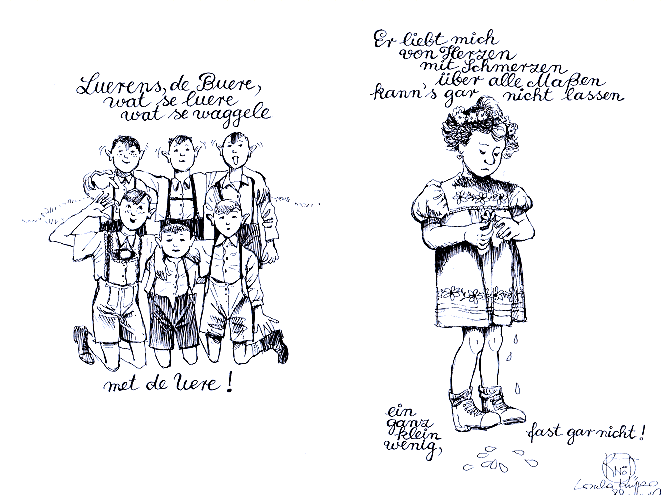 Luerens, de Buere,
wat se luere
wat se waggele
met de Uere !
Er liebt mich
von Herzen
mit Schmerzen
über alle Maßen
kann's gar nicht lassen
ein
ganz
klein
wenig,
fast gar nicht !